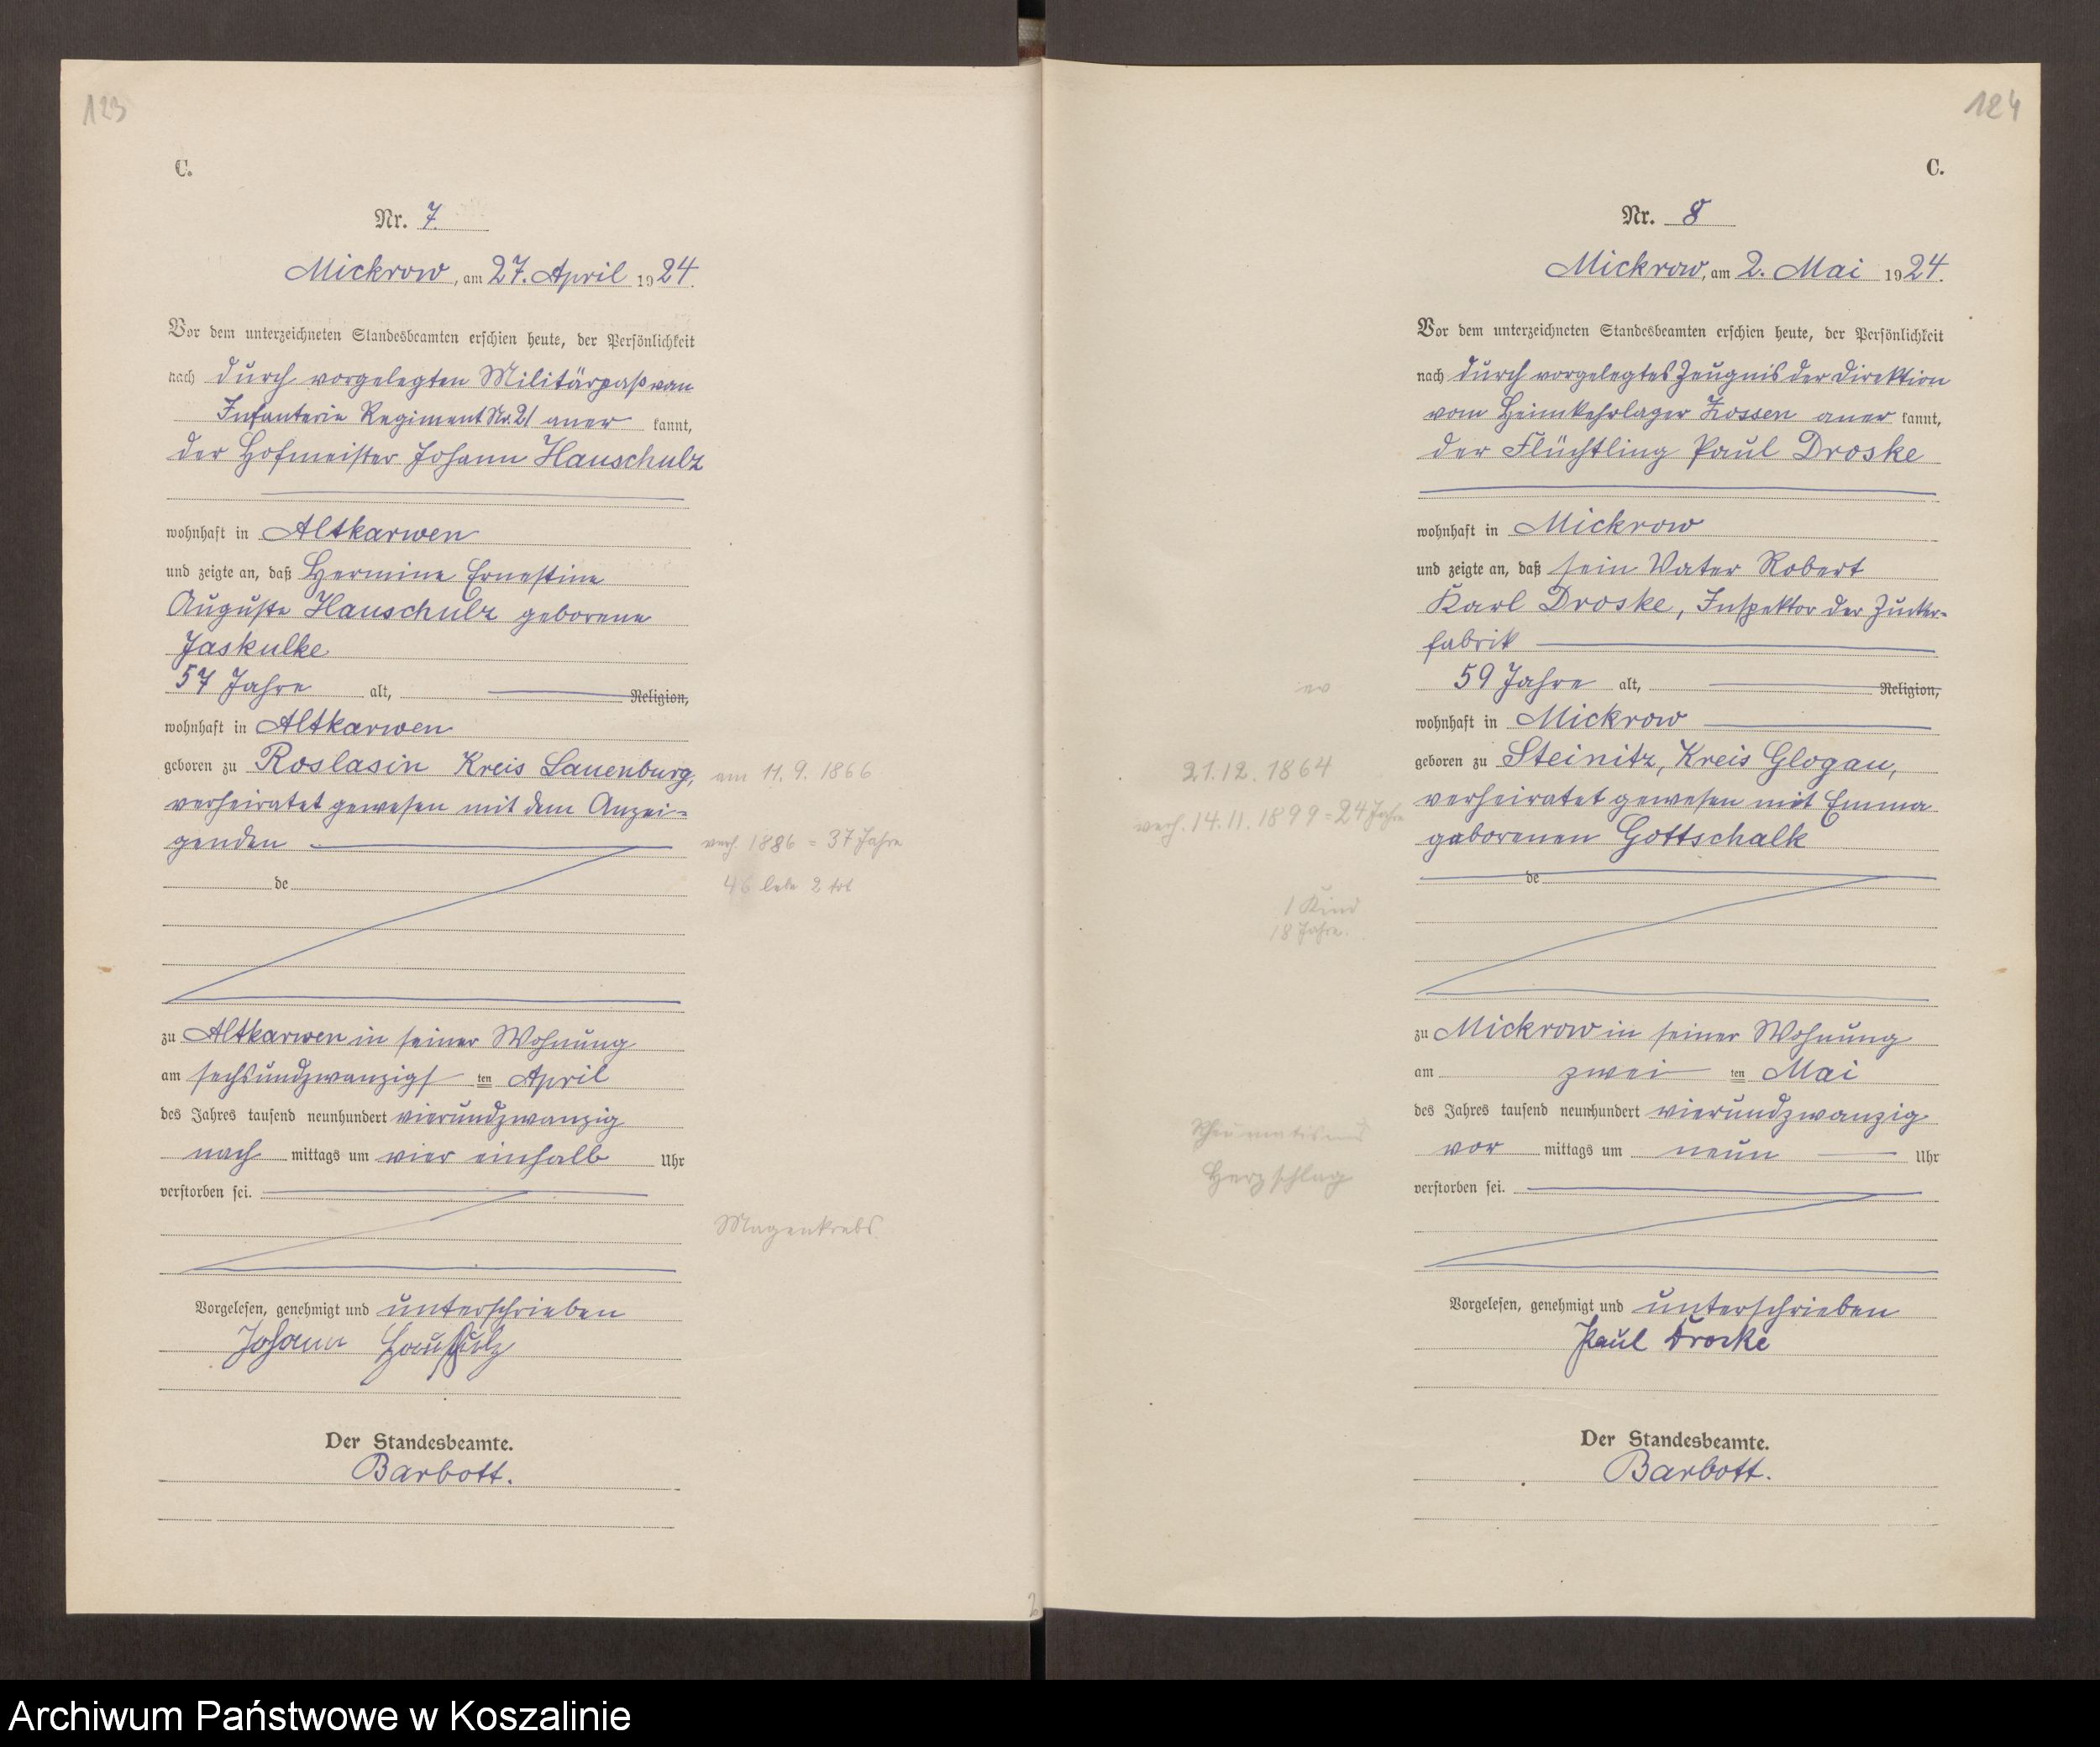 123
C.
Nr. 7.
Mickrow, am 27. April 1924.
Vor dem unterzeichneten Standesbeamten erschien heute, der Persönlichkeit
nach durch vorgelegten Militärpaß vom
Infanterie Regiment Nr. 21 aner kannt,
der Hofmeister Johann Hauschulz
wohnhaft in Altkarwen
und zeigte an, daß Hermine Ernestine
Auguste Hauschulz geborene
Jaskulke
57 Jahre alt, Religion,
wohnhaft in Altkarwen
geboren zu Roslasin Kreis Lauenburg, am 11. 9. 1866
verheiratet gewesen mit dem Anzei-
genden
verh. 1886 = 37 Jahre
de
lebe 2 tot
zu Altkarwen in seiner Wohnung
am sechsundzwanzigs ten April
des Jahres tausend neunhundert vierundzwanzig
nach mittags um vier einhalb Uhr
verstorben sei.
Magenkrebs
Vorgelesen, genehmigt und unterschrieben
Johann Hauschulz
Der Standesbeamte.
Barbott.
124
C.
Nr. 8
Mickrow, am 2. Mai 1924.
Vor dem unterzeichneten Standesbeamten erschien heute, der Persönlichkeit
nach durch vorgelegtes Zeugnis der Direktion
vom Heimkehrlager Zossen aner kannt,
der Flüchtling Paul Droske
wohnhaft in Mickrow
und zeigte an, daß sein Vater Robert
Karl Droske, Inspektor der Zucker-
fabrik
ev
59 Jahre alt, Religion,
wohnhaft in Mickrow
21.12.1864
geboren zu Steinitz, Kreis Glogau,
verh. 14.11.1899 = 24 Jahre
verheiratet gewesen mit Emma
geborenen Gottschalk
de
1 Kind
18 Jahre.
zu Mickrow in seiner Wohnung
am zwei ten Mai
des Jahres tausend neunhundert vierundzwanzig
Rheumatismus
vor mittags um neun Uhr
Herzschlag
verstorben sei.
Vorgelesen, genehmigt und unterschrieben
Paul Droske
Der Standesbeamte.
Barbott.
Archiwum Państwowe w Koszalinie